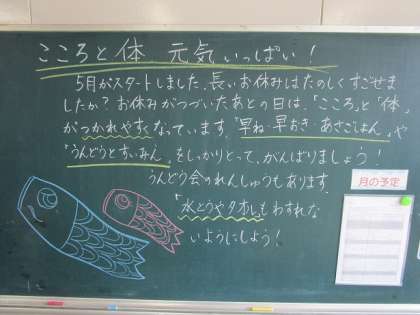 こころと体 元気いっぱい!
5月がスタートしました。長いお休みはたのしくすごせまし
たか?お休みがつづいたあとの日は、「こころ」と「体」
がつかれやすくなっています。「早ね・早おき・あさごはん」や
「うんどうとすいみん」をしっかりとって、がんばりましょう!
うんどう会のれんしゅうもあります。
「水とうやタオル」もわすれな
いようにしよう!
月の予定